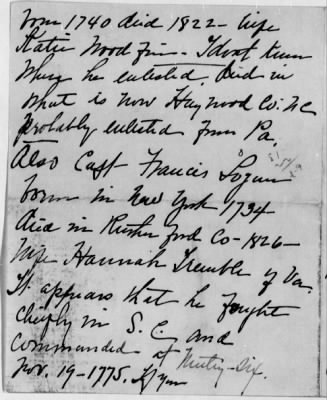 born 1740 died 1822 - wife
Katie Woodfin - I dont know
Where he enlisted. died in
what is now Haywood Co. NC
probably enlisted from Pa.
Also Capt Francis Logan
born in New York 1734
died in Rutherford Co - 1826 -
Wife Hannah Tremble of Va.
It appears that he fought
chiefly in S. C. and
commanded at Ninety-Six.
Nov. 19 - 1775. If you